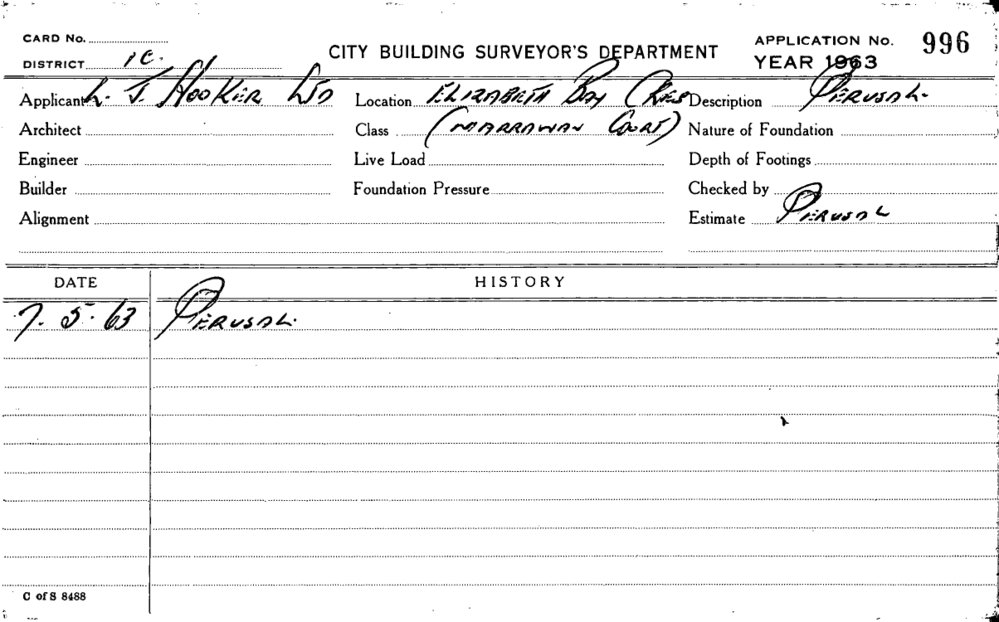 CARD No.
DISTRICT 1C.
CITY BUILDING SURVEYOR'S DEPARTMENT
APPLICATION No. 996
YEAR 1963
Applicant L. J. HOOKER LTD Location ELIZABETH BAY CRES Description PERUSAL.
Architect Class (MARRAWAY COURT) Nature of Foundation
Engineer Live Load Depth of Footings
Builder Foundation Pressure Checked by
Alignment Estimate PERUSAL
DATE HISTORY
7.5.63 PERUSAL.
C of S 8488